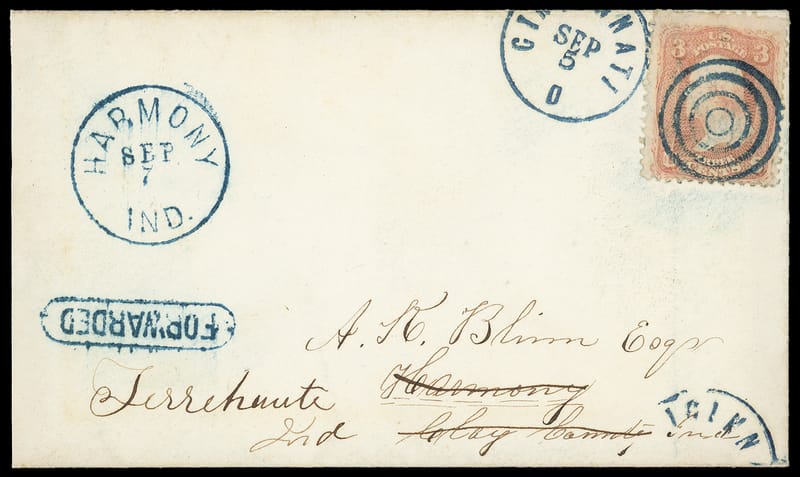 CINCINNATI
SEP
5
O
3 U.S. POSTAGE 3
CENTS
HARMONY
SEP
7
IND.
FORWARDED
A. K. Blinn Esqr
Terrehaute Harmony
Ind Clay County Ind